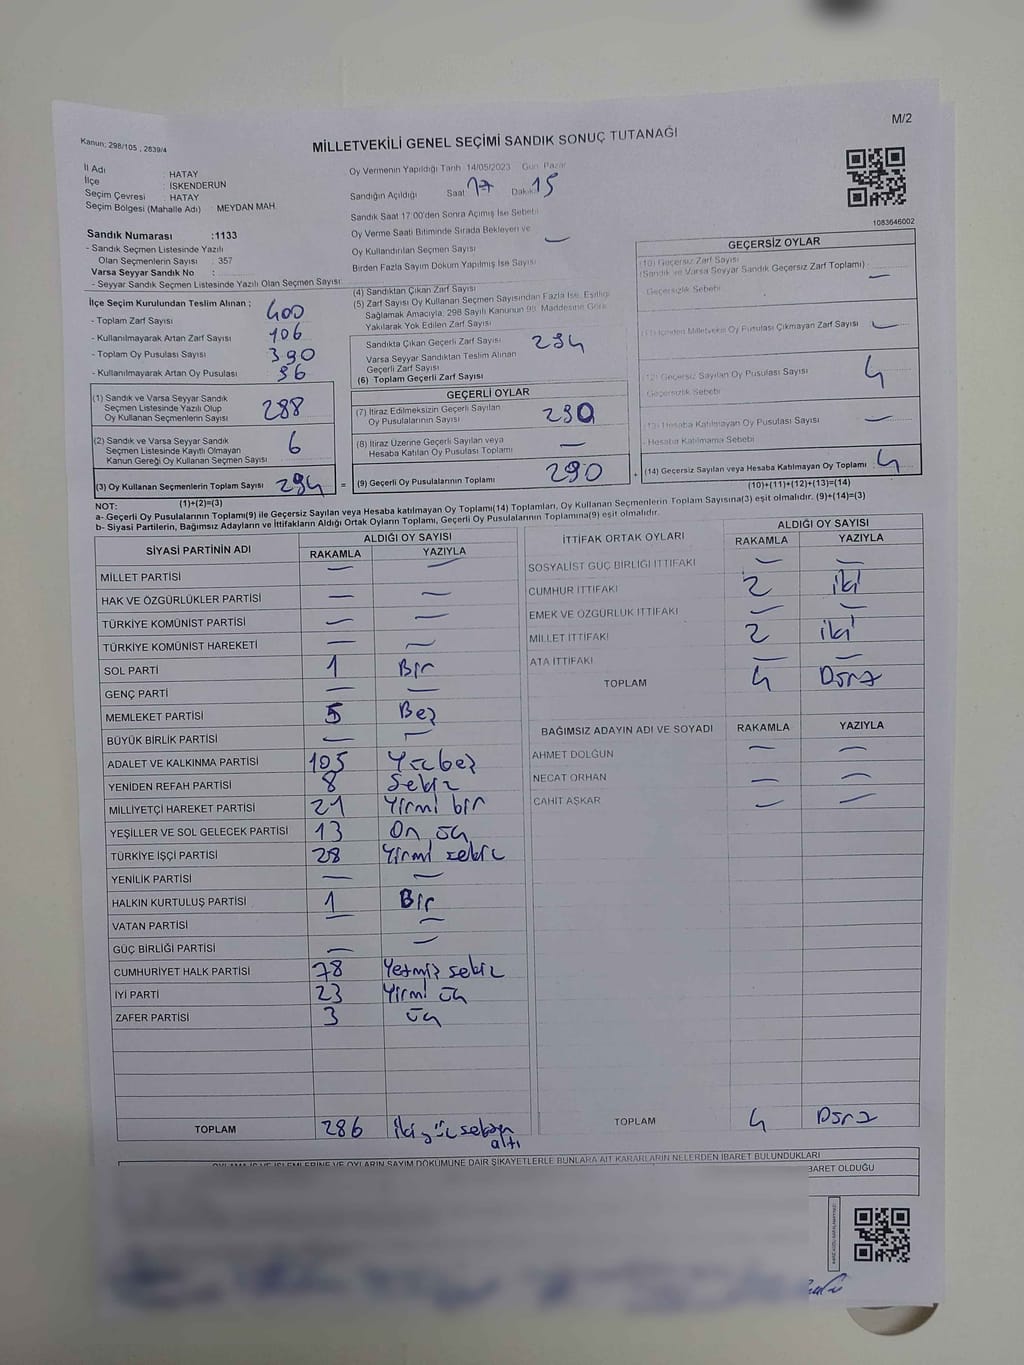 M/2
Kanun; 298/105 , 2839/4
MİLLETVEKİLİ GENEL SEÇİMİ SANDIK SONUÇ TUTANAĞI
İl Adı : HATAY
İlçe : İSKENDERUN
Seçim Çevresi : HATAY
Seçim Bölgesi (Mahalle Adı) : MEYDAN MAH.
Sandık Numarası :1133
- Sandık Seçmen Listesinde Yazılı
Olan Seçmenlerin Sayısı : 357
Varsa Seyyar Sandık No :
- Seyyar Sandık Seçmen Listesinde Yazılı Olan Seçmen Sayısı:
Oy Vermenin Yapıldığı Tarih 14/05/2023 Gün Pazar
Sandığın Açıldığı Saat 17 Dakika 15
Sandık Saat 17:00'den Sonra Açımış İse Sebebi
Oy Verme Saati Bitiminde Sırada Bekleyen ve
Oy Kullandırılan Seçmen Sayısı —
Birden Fazla Sayım Döküm Yapılmış İse Sayısı
1083646002
İlçe Seçim Kurulundan Teslim Alınan ;
- Toplam Zarf Sayısı 400
- Kullanılmayarak Artan Zarf Sayısı 106
- Toplam Oy Pusulası Sayısı 390
- Kullanılmayarak Artan Oy Pusulası 96
(1) Sandık ve Varsa Seyyar Sandık
Seçmen Listesinde Yazılı Olup
Oy Kullanan Seçmenlerin Sayısı 288
(2) Sandık ve Varsa Seyyar Sandık
Seçmen Listesinde Kayıtlı Olmayan
Kanun Gereği Oy Kullanan Seçmen Sayısı 6
(3) Oy Kullanan Seçmenlerin Toplam Sayısı 294
(1)+(2)=(3)
(4) Sandıktan Çıkan Zarf Sayısı
(5) Zarf Sayısı Oy Kullanan Seçmen Sayısından Fazla İse, Eşitliği
Sağlamak Amacıyla; 298 Sayılı Kanunun 98. Maddesine Göre
Yakılarak Yok Edilen Zarf Sayısı
Sandıkta Çıkan Geçerli Zarf Sayısı 294
Varsa Seyyar Sandıktan Teslim Alınan
Geçerli Zarf Sayısı
(6) Toplam Geçerli Zarf Sayısı
GEÇERLİ OYLAR
(7) İtiraz Edilmeksizin Geçerli Sayılan
Oy Pusulalarının Sayısı 290
(8) İtiraz Üzerine Geçerli Sayılan veya
Hesaba Katılan Oy Pusulası Toplamı —
= (9) Geçerli Oy Pusulalarının Toplamı 290
GEÇERSİZ OYLAR
(10) Geçersiz Zarf Sayısı
(Sandık ve Varsa Seyyar Sandık Geçersiz Zarf Toplamı) : —
Geçersizlik Sebebi
(11) İçinden Milletvekili Oy Pusulası Çıkmayan Zarf Sayısı —
(12) Geçersiz Sayılan Oy Pusulası Sayısı 4
Geçersizlik Sebebi
(13) Hesaba Katılmayan Oy Pusulası Sayısı —
- Hesaba Katılmama Sebebi
+ (14) Geçersiz Sayılan veya Hesaba Katılmayan Oy Toplamı : 4
(10)+(11)+(12)+(13)=(14)
NOT:
a- Geçerli Oy Pusulalarının Toplamı(9) ile Geçersiz Sayılan veya Hesaba katılmayan Oy Toplamı(14) Toplamları, Oy Kullanan Seçmenlerin Toplam Sayısına(3) eşit olmalıdır. (9)+(14)=(3)
b- Siyasi Partilerin, Bağımsız Adayların ve İttifakların Aldığı Ortak Oyların Toplamı, Geçerli Oy Pusulalarının Toplamına(9) eşit olmalıdır.
SİYASİ PARTİNİN ADI ALDIĞI OY SAYISI
RAKAMLA YAZIYLA
MİLLET PARTİSİ — —
HAK VE ÖZGÜRLÜKLER PARTİSİ — —
TÜRKİYE KOMÜNİST PARTİSİ — —
TÜRKİYE KOMÜNİST HAREKETİ — —
SOL PARTİ 1 Bir
GENÇ PARTİ — —
MEMLEKET PARTİSİ 5 Beş
BÜYÜK BİRLİK PARTİSİ — —
ADALET VE KALKINMA PARTİSİ 105 Yüzbeş
YENİDEN REFAH PARTİSİ 8 Sekiz
MİLLİYETÇİ HAREKET PARTİSİ 21 Yirmi bir
YEŞİLLER VE SOL GELECEK PARTİSİ 13 On üç
TÜRKİYE İŞÇİ PARTİSİ 28 Yirmi sekiz
YENİLİK PARTİSİ — —
HALKIN KURTULUŞ PARTİSİ 1 Bir
VATAN PARTİSİ — —
GÜÇ BİRLİĞİ PARTİSİ — —
CUMHURİYET HALK PARTİSİ 78 Yetmiş sekiz
İYİ PARTİ 23 Yirmi üç
ZAFER PARTİSİ 3 üç
TOPLAM 286 ikiyüz seksen altı
İTTİFAK ORTAK OYLARI ALDIĞI OY SAYISI
RAKAMLA YAZIYLA
SOSYALİST GÜÇ BİRLİĞİ İTTİFAKI — —
CUMHUR İTTİFAKI 2 iki
EMEK VE ÖZGÜRLÜK İTTİFAKI — —
MİLLET İTTİFAKI 2 iki
ATA İTTİFAKI — —
TOPLAM 4 Dört
BAĞIMSIZ ADAYIN ADI VE SOYADI RAKAMLA YAZIYLA
AHMET DOLĞUN — —
NECAT ORHAN — —
CAHİT AŞKAR — —
TOPLAM 4 Dört
OYLAMA İŞ VE İŞLEMLERİNE VE OYLARIN SAYIM DÖKÜMÜNE DAİR ŞİKAYETLERLE BUNLARA AİT KARARLARIN NELERDEN İBARET BULUNDUKLARI
BARET OLDUĞU